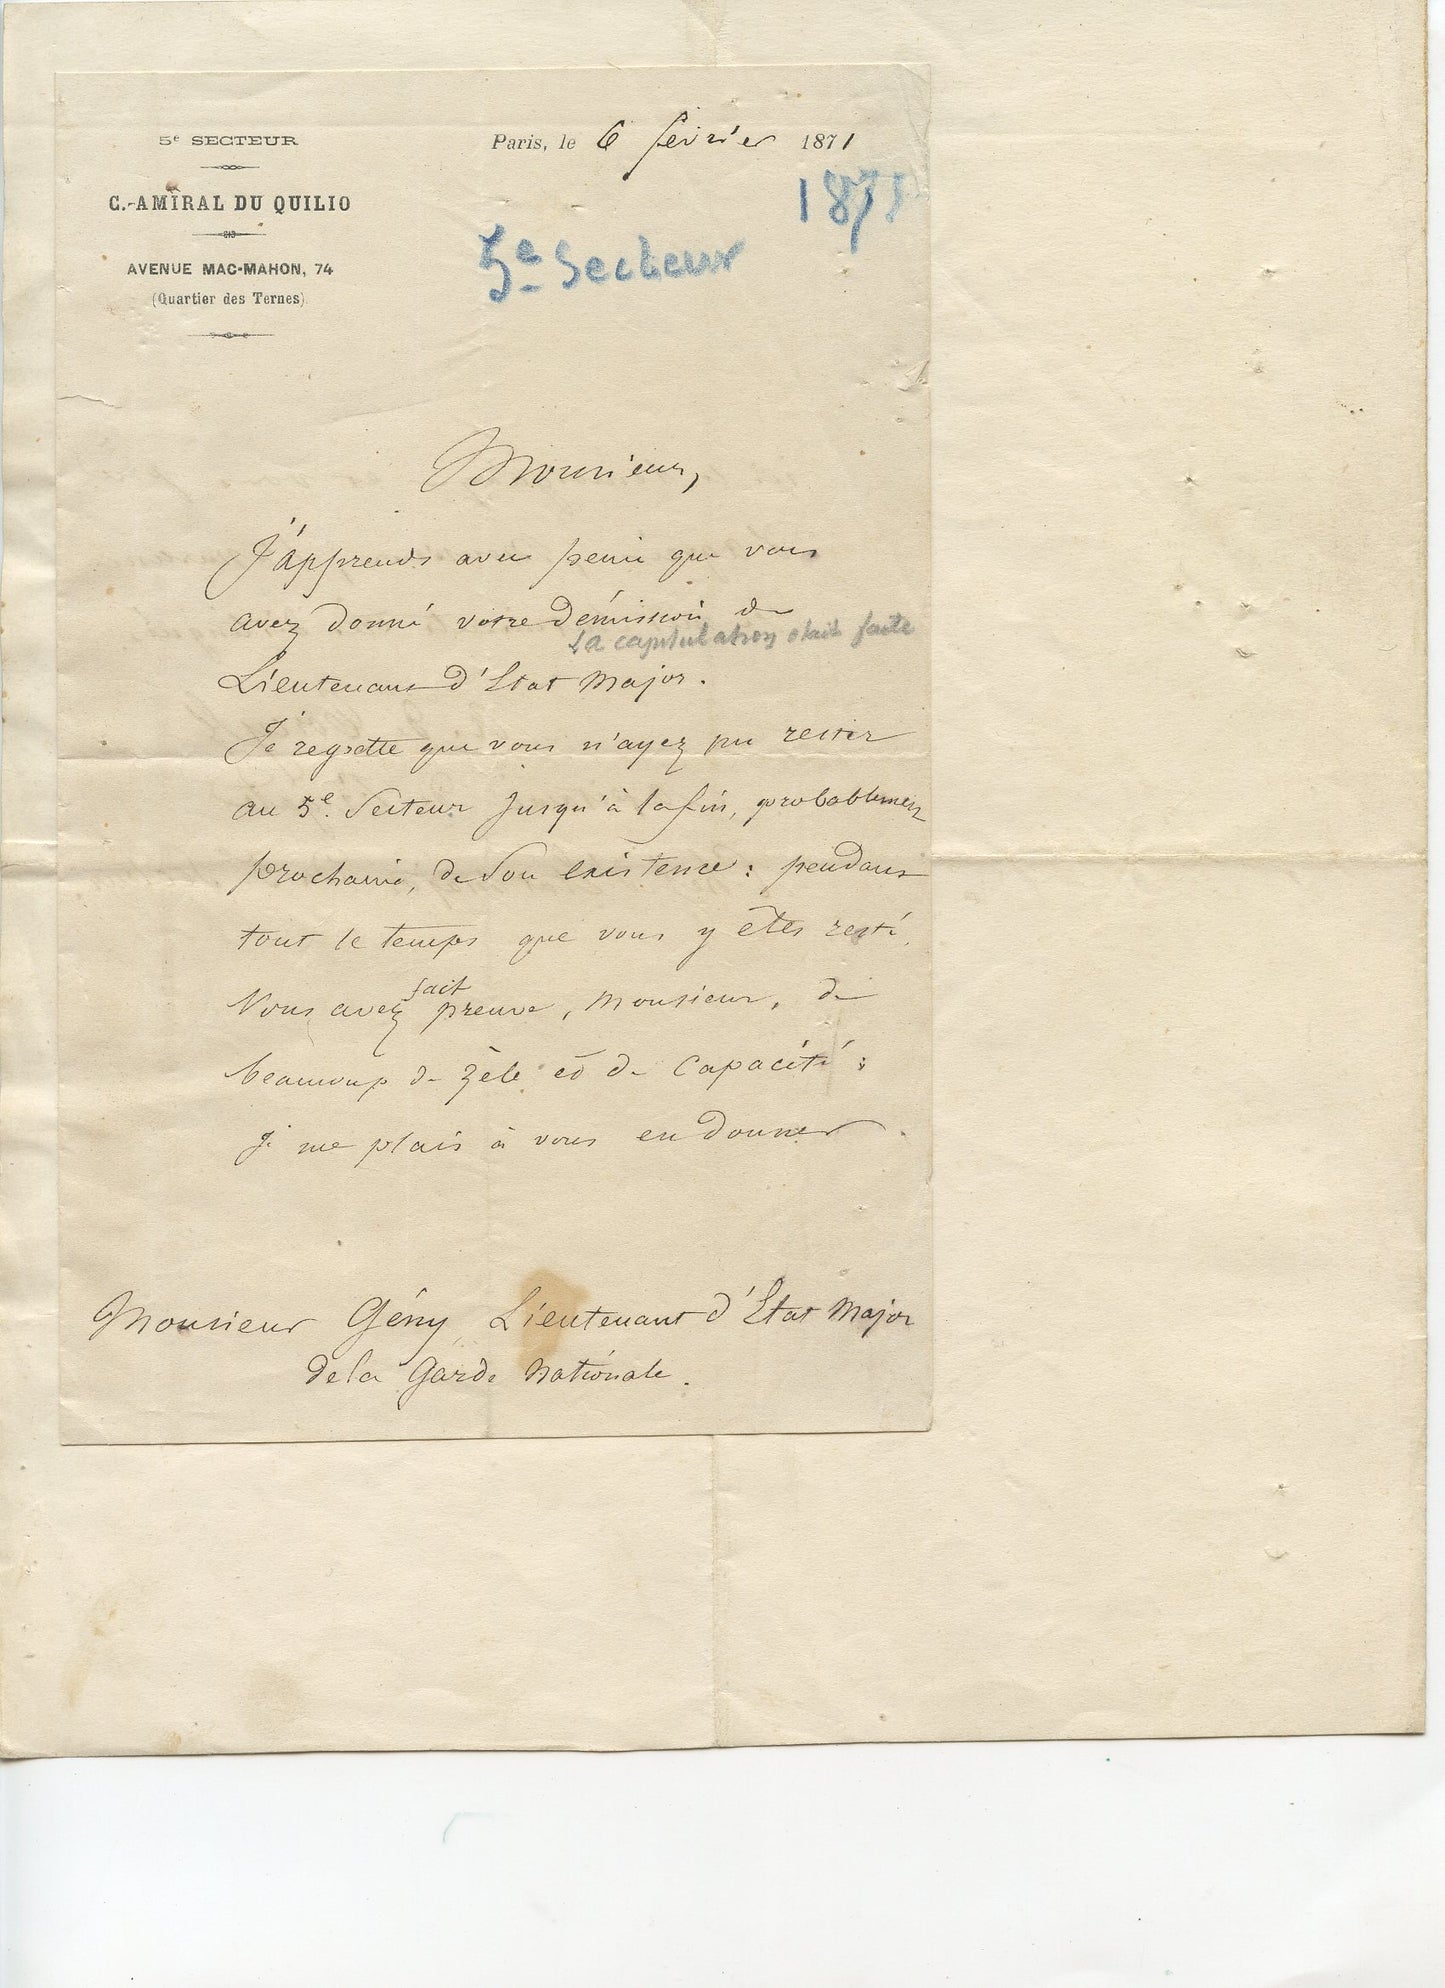 5e SECTEUR
C.-AMIRAL DU QUILIO
AVENUE MAC-MAHON, 74
(Quartier des Ternes)
Paris, le 6 février 1871
1871
5e Secteur
Monsieur,
J'apprends avec peine que vous
avez donné votre démission de
la capitulation était faite
Lieutenant d'Etat Major.
Je regrette que vous n'ayez pu rester
au 5e. Secteur jusqu'à la fin, probablement
prochaine, de son existence : pendant
tout le temps que vous y êtes resté,
Vous avez fait preuve, Monsieur, de
beaucoup de zèle et de capacité :
Je me plais à vous en donner
Monsieur Gény, Lieutenant d'Etat Major
de la Garde Nationale.